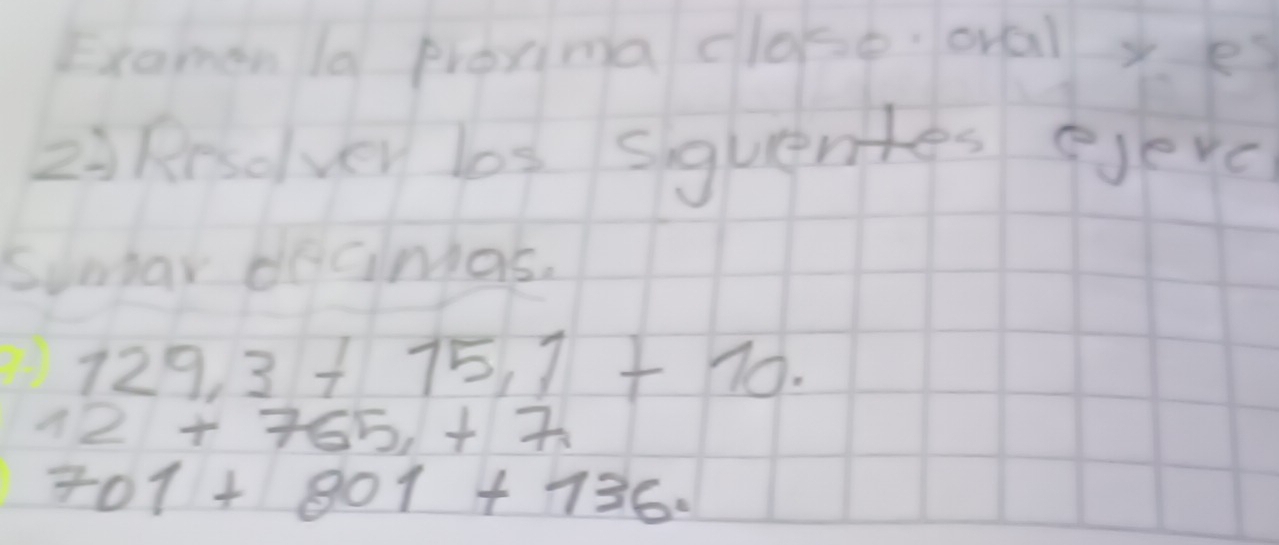 Examen la proxima clase. oral y es
2-) Resolver los siguientes ejerc
Sumar decimas.
7.) 129,3 + 15,1 + 10.
12 + 765, + 7.
701 + 801 + 136.